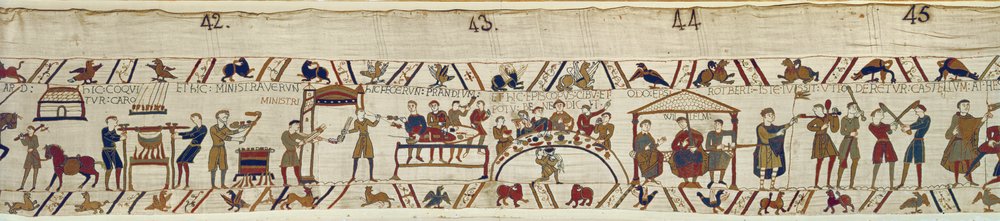 42.
43.
44
45
ARD:
hIC:COQVI
TVR:CARO
ET hIC: MINISTRAVERVN
MINISTRI
hIC FECERVN: PRANDIVM:
ET hIC: EPISCOPVS: CIBV: ET:
POTV: BENE DICIT:
ODO: EPS:
WILLELM:
ROTBERT:
ISTE: IVSSIT: VT FODERETVR: CASTELLVM: AT hES